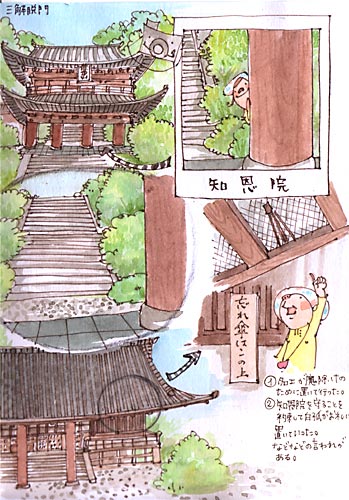 三解脱門
知恩院
忘れ傘はこの上
①知エが魔除けの
ために置いて行った。
②知恩院を守ることを
約束して白狐がお礼に
置いていった。
などなどの言われが
ある。